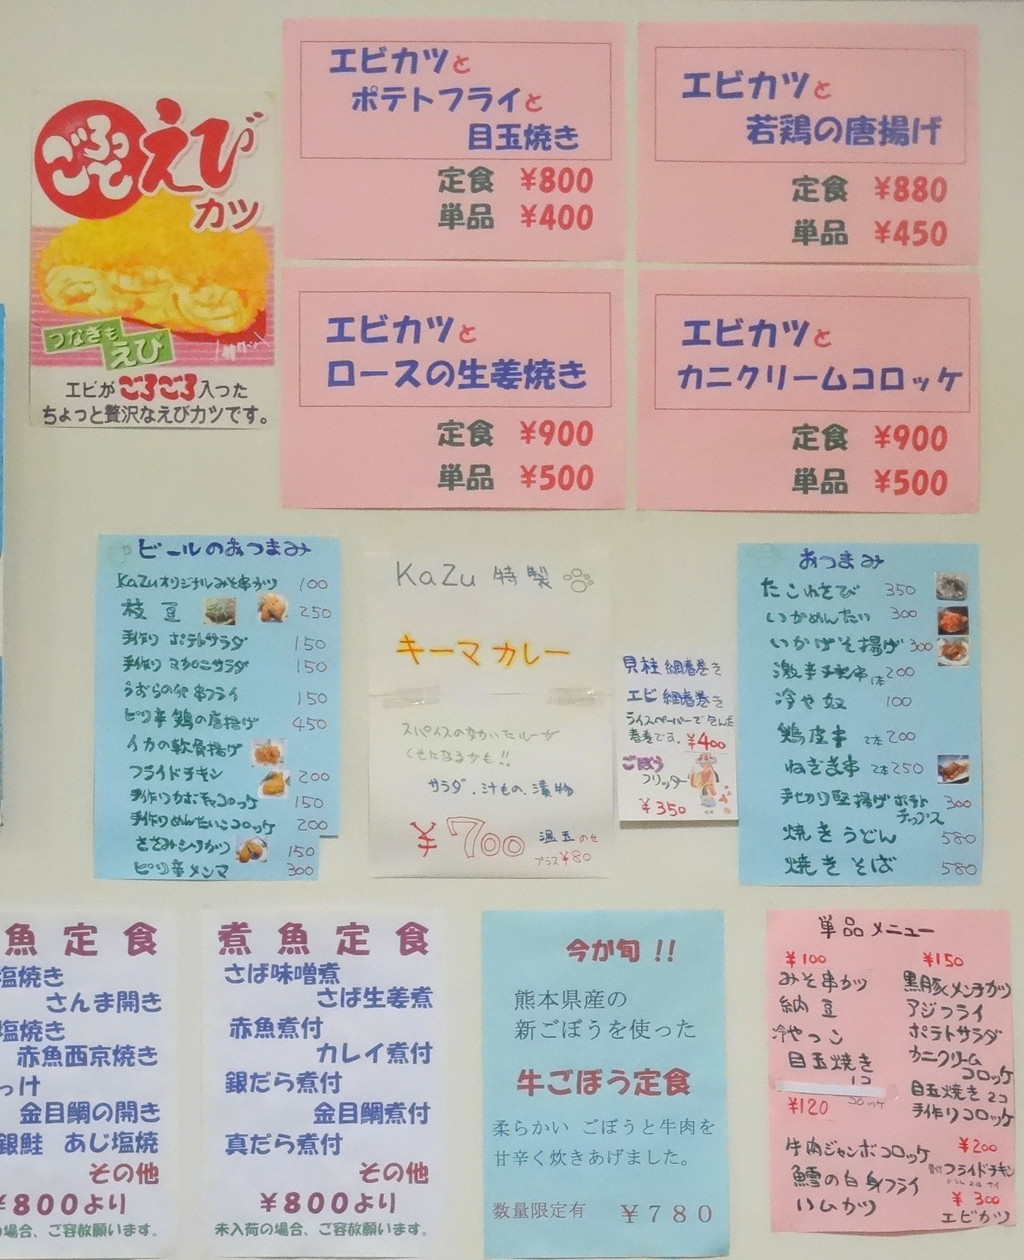 ごろっと
えび
カツ
つなぎも
えび
エビがごろごろ入った
ちょっと贅沢なえびカツです。
エビカツと
ポテトフライと
目玉焼き
定食 ¥800
単品 ¥400
エビカツと
若鶏の唐揚げ
定食 ¥880
単品 ¥450
エビカツと
ロースの生姜焼き
定食 ¥900
単品 ¥500
エビカツと
カニクリームコロッケ
定食 ¥900
単品 ¥500
ビールのおつまみ
KaZuオリジナルみそ串かつ 100
枝豆 250
手作り ポテトサラダ 150
手作り マカロニサラダ 150
うずらの卵串フライ 150
ピリ辛 鶏の唐揚げ 450
イカの軟骨揚げ
フライドチキン 200
手作りかぼちゃコロッケ 150
手作りめんたいコロッケ 200
ささみシソカツ 150
ピリ辛メンマ 300
KaZu 特製
キーマカレー
スパイスのきいたルーが
くせになるかも!!
サラダ.汁もの.漬物
¥700
温玉のせ
プラス¥80
貝柱 網春巻き
エビ 網春巻き
ライスペーパーで包んだ
春巻です。¥400
ごぼう
フリッター
¥350
おつまみ
たこわさび 350
いかめんたい 300
いかげそ揚げ 300
激辛チョモ串 1本200
冷や奴 100
鶏皮串 2本200
ねぎま串 2本250
手切り堅揚げポテト
チップス 300
焼きうどん 580
焼きそば 580
魚定食
塩焼き
さんま開き
塩焼き
赤魚西京焼き
っけ
金目鯛の開き
銀鮭 あじ塩焼
その他
¥800より
の場合、ご容赦願います。
煮魚定食
さば味噌煮
さば生姜煮
赤魚煮付
カレイ煮付
銀だら煮付
金目鯛煮付
真だら煮付
その他
¥800より
未入荷の場合、ご容赦願います。
今が旬 !!
熊本県産の
新ごぼうを使った
牛ごぼう定食
柔らかい ごぼうと牛肉を
甘辛く炊きあげました。
数量限定有 ¥780
単品メニュー
¥100
みそ串かつ
納豆
冷やっこ
目玉焼き
1コ
コロッケ
¥120
牛肉ジャンボコロッケ
鱈の白身フライ
ハムかつ
¥150
黒豚メンチカツ
アジフライ
ポテトサラダ
カニクリーム
コロッケ
目玉焼き 2コ
手作りコロッケ
¥200
骨付フライドチキン
¥300
エビかつ